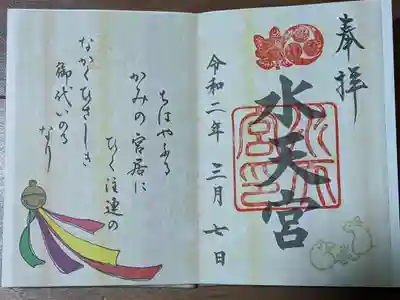 奉拝
水天宮
令和二年三月七日
ちはやふる
かみの宮居に
ひく注連の
なかくひさしき
御代いのる
なり